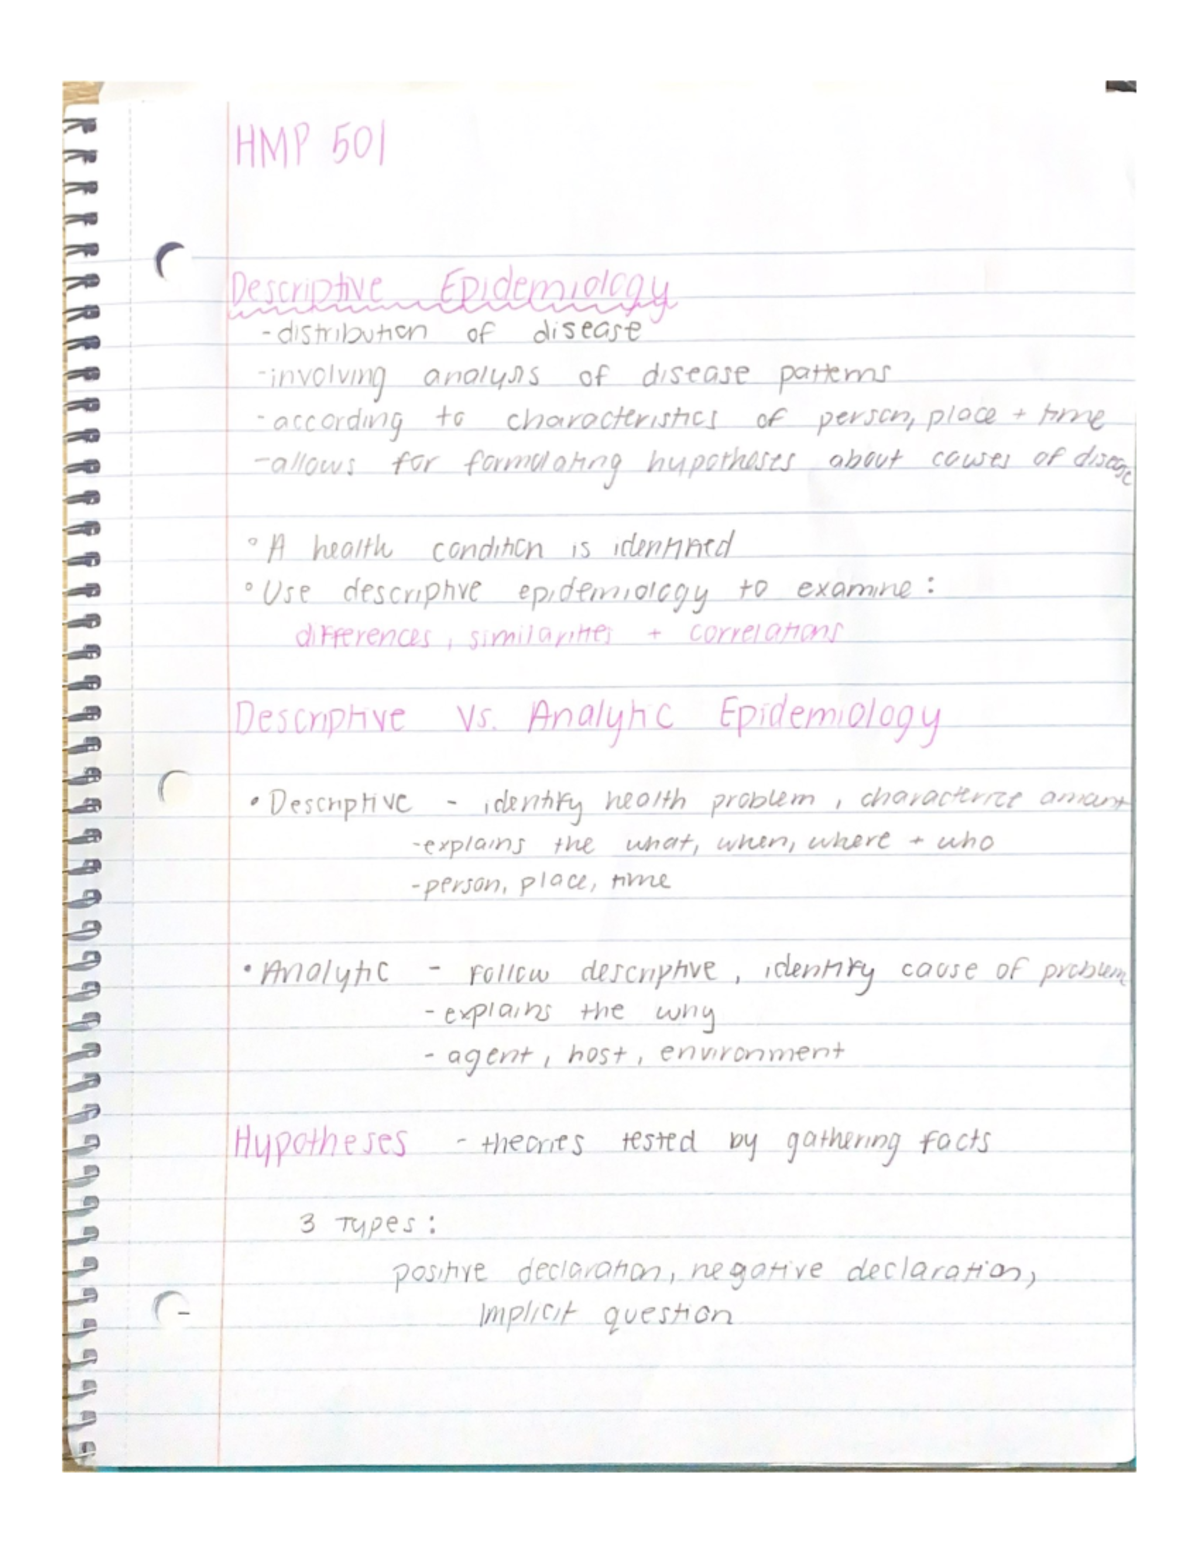 HMP 501
Descriptive Epidemiology
-distribution of disease
-involving analysis of disease patterns
-according to characteristics of person, place + time
-allows for formulating hypotheses about causes of disease
° A health condition is identified
° Use descriptive epidemiology to examine:
differences, similarities + correlations
Descriptive vs. Analytic Epidemiology
• Descriptive - identify health problem, characterize amount
-explains the what, when, where + who
-person, place, time
• Analytic - Follow descriptive, identify cause of problem
-explains the why
- agent, host, environment
Hypotheses - theories tested by gathering facts
3 Types:
positive declaration, negative declaration,
Implicit question